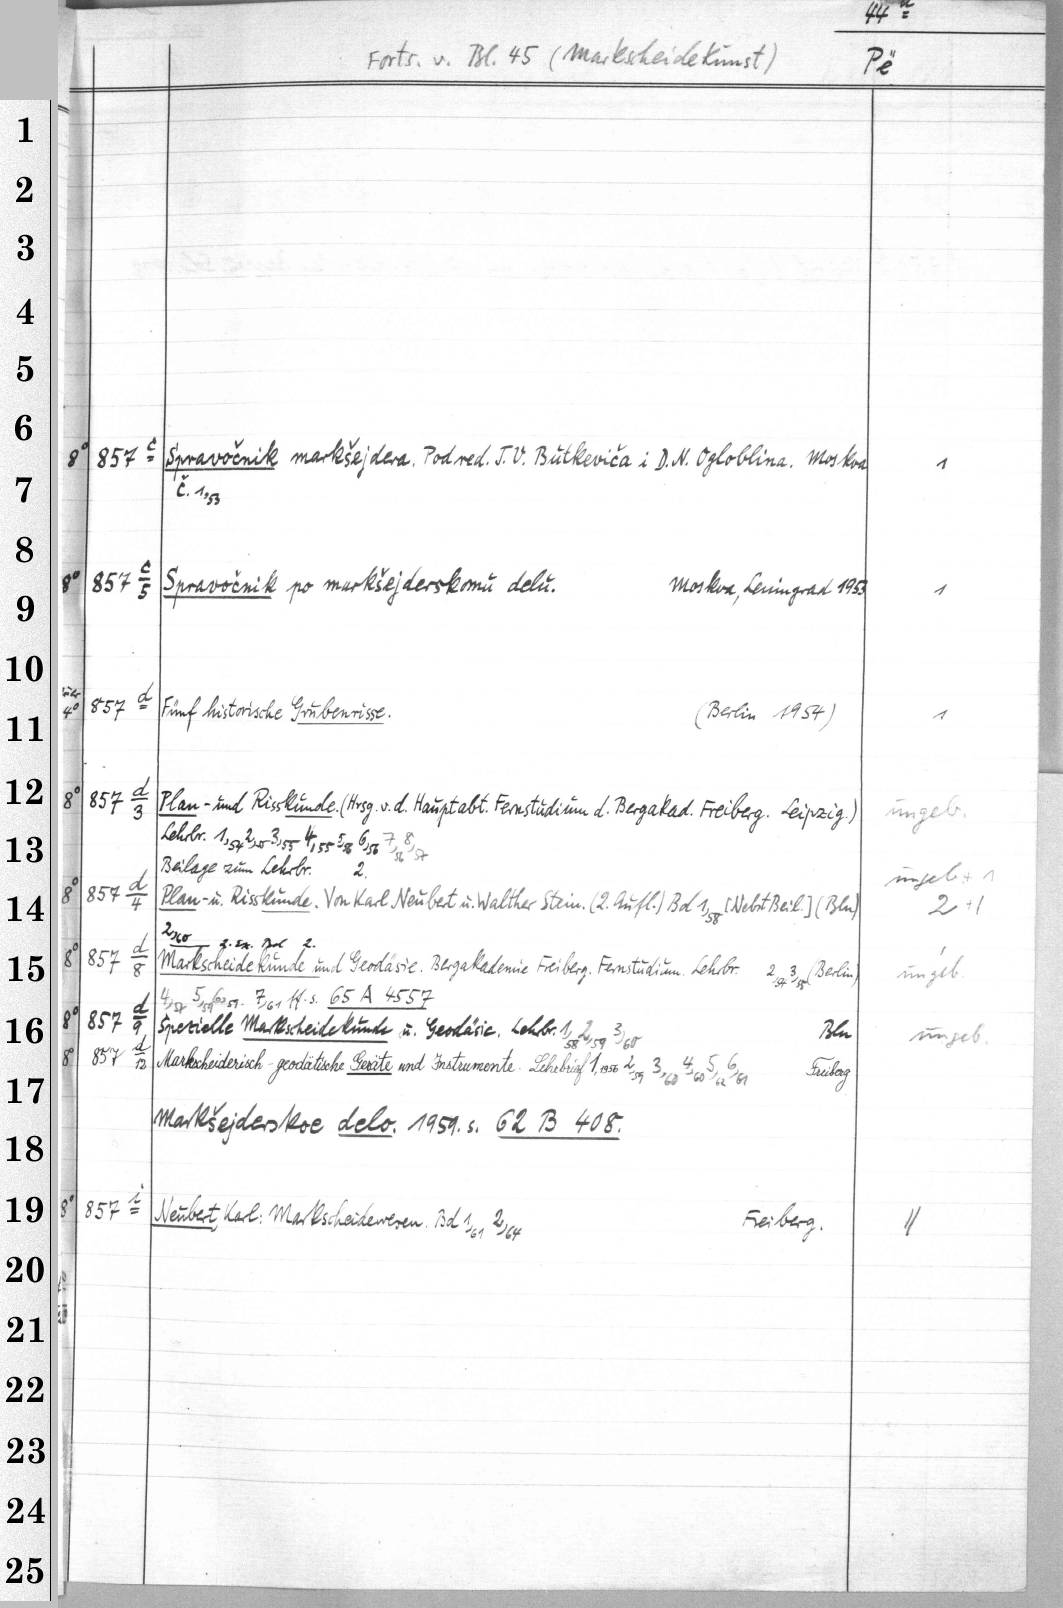 44 a
Forts. v. Bl. 45 (Markscheidekunst) Pë
1
2
3
4
5
6
8° 857 c Spravočnik markšejdera. Pod red. T.V. Butkeviča i D.N. Ogloblina. Moskva 1
7
Č. 1,53
8
8° 857 c/5 Spravočnik po markšejderskomu delu. Moskva, Leningrad 1953 1
9
10
über 4° 857 d Fünf historische Grubenrisse. (Berlin 1954) 1
11
12
8° 857 d/3 Plan- und Risskunde. (Hrsg. v. d. Hauptabt. Fernstudium d. Bergakad. Freiberg. Leipzig.) ungeb.
Lehrbr. 1,54 2,55 3,55 4,55 5,56 6,56 7,56 8,57
13
Beilage zum Lehrbr. 2.
8° 857 d/4 Plan- u. Risskunde. Von Karl Neubert u. Walther Stein. (2. Aufl.) Bd 1,58 [Nebst Beil.] (Bln) ungeb + 1
2 + 1
14
2,60 2. Ex. Bd 2.
8° 857 d/8 Markscheidekunde und Geodäsie. Bergakademie Freiberg. Fernstudium. Lehrbr. 2,57 3,58 (Berlin) ungeb.
15
4,57 5,59 6,59. 7,61 ff. s. 65 A 4557
8° 857 d/9 Spezielle Markscheidekunde u. Geodäsie. Lehrbr. 1,58 2,59 3,60 Bln ungeb.
16
8° 857 d/12 Markscheiderisch-geodätische Geräte und Instrumente. Lehrbrief 1,1956 2,59 3,60 4,60 5,62 6,61 Freiberg
17
Markšejderskoe delo. 1959. s. 62 B 408.
18
19
8° 857 i Neubert, Karl: Markscheidewesen. Bd 1,61 2,64 Freiberg. //
20
21
22
23
24
25